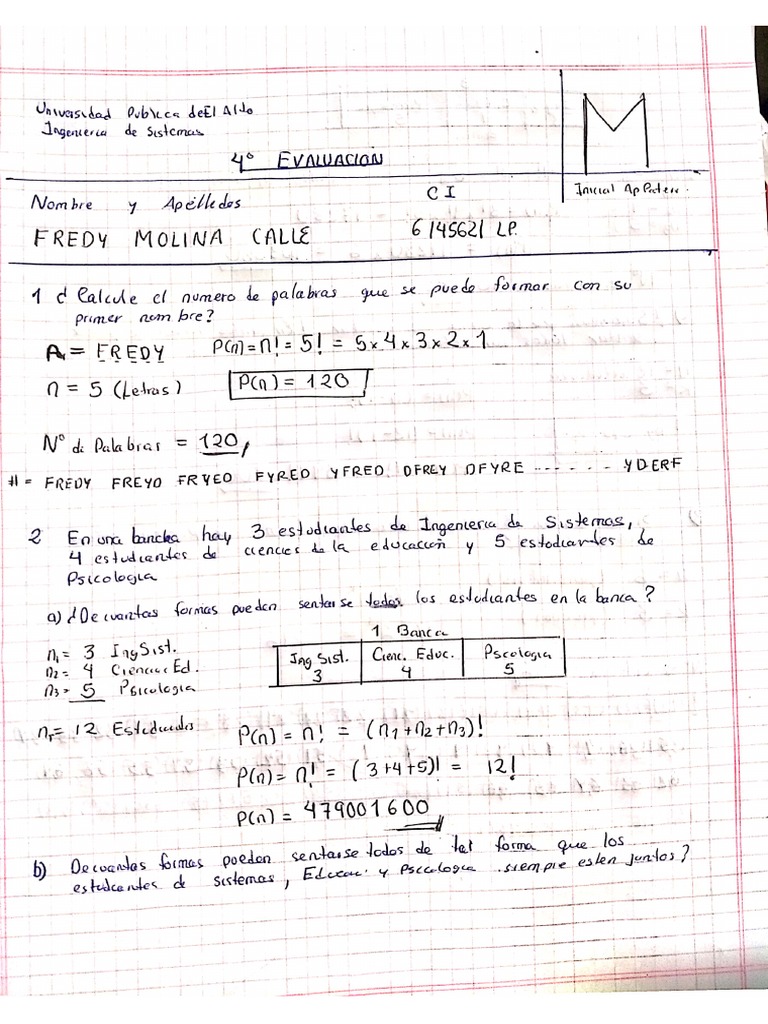 Universidad Publica de El Alto
Ingenieria de Sistemas
4° EVALUACION
M
Inicial Ap Patern.
Nombre y Apellidos
CI
FREDY MOLINA CALLE
6145621 LP.
1 ¿ Calcule el numero de palabras que se puede formar con su
primer nombre?
A = FREDY P(n) = n! = 5! = 5 x 4 x 3 x 2 x 1
n = 5 (Letras) P(n) = 120
N° de Palabras = 120
# = FREDY FREYD FRYED FYRED YFRED DFREY DFYRE ------ YDERF
2 En una bancka hay 3 estudiantes de Ingenieria de Sistemas,
4 estudiantes de ciencies de la educación y 5 estodiantes de
Psicologia
a) ¿De cuantas formas pueden sentarse todos los estudiantes en la banca?
1 Banca
n1 = 3 Ing Sist.
n2 = 4 Ciencias Ed.
n3 = 5 Psicologia
Ing Sist. 3 Cienc. Educ. 4 Pscologia 5
nT = 12 Estudiantes
P(n) = n! = (n1+n2+n3)!
P(n) = n! = (3+4+5)! = 12!
P(n) = 479001600
b) De cuantas formas pueden sentarse todos de tal forma que los
estudiantes de sistemas, Educac. y Pscologia siempre esten juntos?